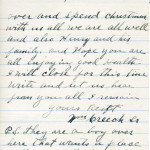 over and spend christmas
with us all we are all well
and also Henry and his
family. and Hope you are
all enjoying good Health
I will close for this time
Write and let us hear
from you all I remain
Yours Resptf
Wm Creech Sr
P.S. They are a boy over
here that wants a place